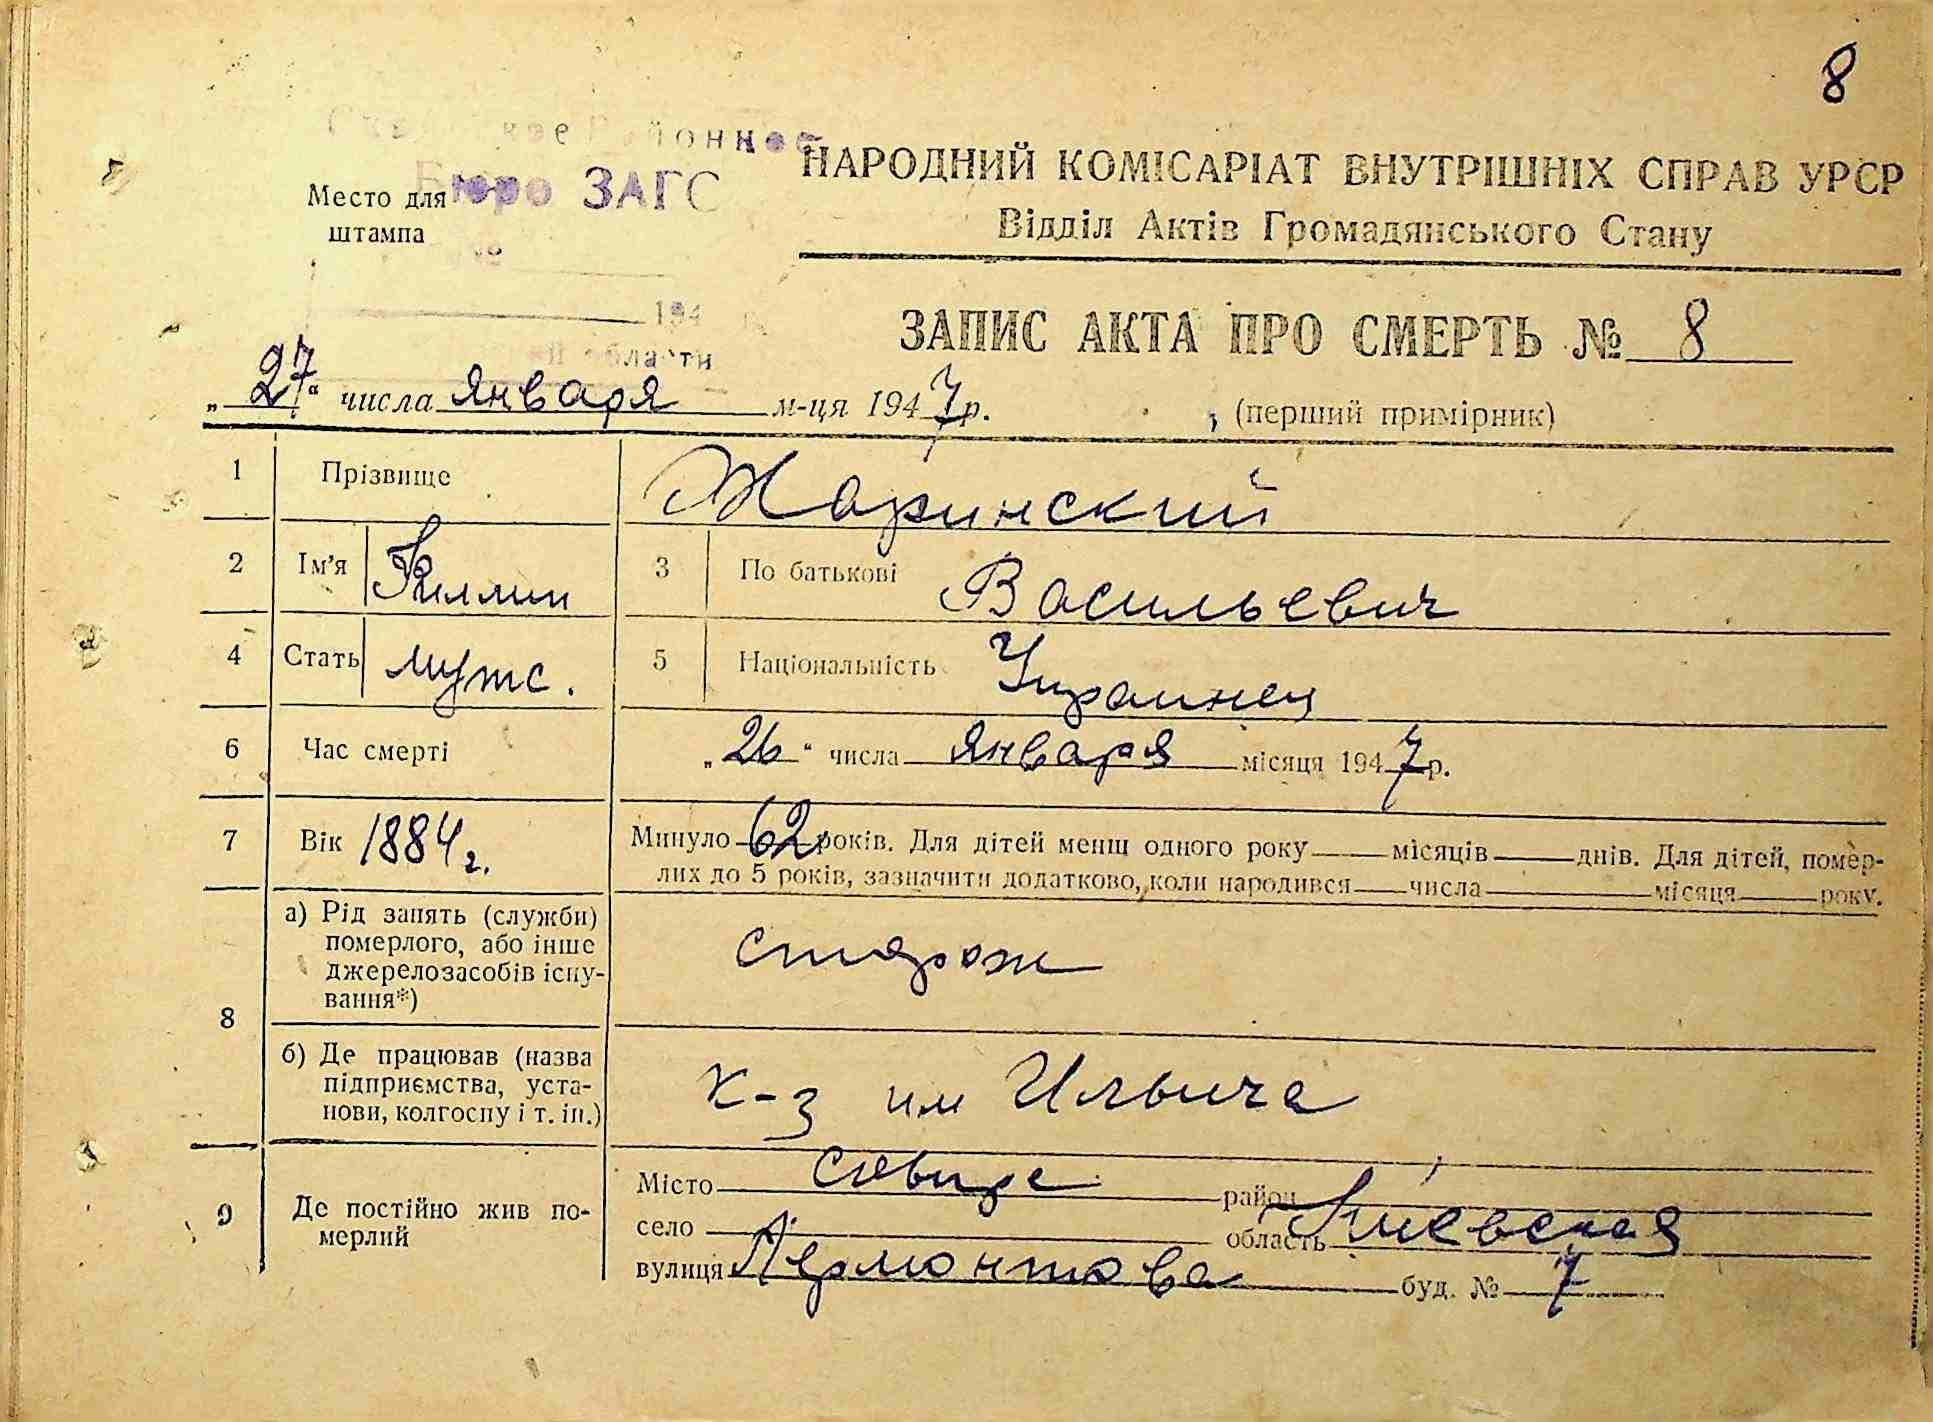 8
Районное
Бюро ЗАГС
Место для
штампа
194
области
НАРОДНИЙ КОМІСАРІАТ ВНУТРІШНІХ СПРАВ УРСР
Відділ Актів Громадянського Стану
ЗАПИС АКТА ПРО СМЕРТЬ № 8
„27“ числа января м-ця 1947 р.
(перший примірник)
1 Прізвище Жаринский
2 Ім'я 3 По батькові Васильевич
4 Стать мужс. 5 Національність Украинец
6 Час смерті „26“ числа января місяця 1947 р.
7 Вік 1884 г. Минуло 62 років. Для дітей менш одного року місяців днів. Для дітей, помер-
лих до 5 років, зазначити додатково, коли народився числа місяця року.
8 а) Рід занять (служби)
померлого, або інше
джерелозасобів існу-
вання*)
сторож
б) Де працював (назва
підприємства, уста-
нови, колгоспу і т. ін.)
к-з им Ильича
9 Де постійно жив по-
мерлий
Місто Сквыра район
село область Киевская
вулиця Лермонтова буд. № 7